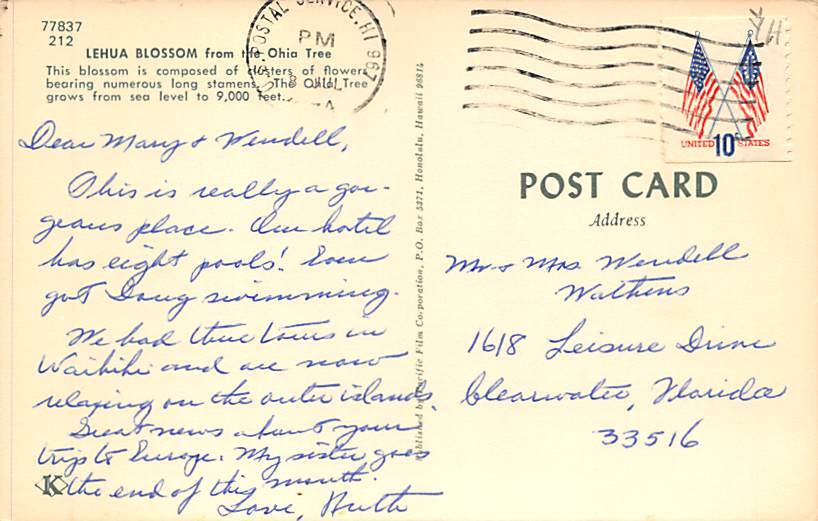 77837
212
LEHUA BLOSSOM from the Ohia Tree
This blossom is composed of clusters of flowers
bearing numerous long stamens. The Ohia Tree
grows from sea level to 9,000 feet.
POSTAL SERVICE, HI 967
PM
JUL
Dear Mary & Wendell,
This is really a gor-
geous place. Our hotel
has eight pools! Even
got Doug swimming.
We had three tours in
Waikiki and are now
relaxing on the outer islands.
Great news about your
trip to Europe. My sister goes
the end of this month.
Love, Ruth
K
Published by Pacific Film Corporation, P.O. Box 5371, Honolulu, Hawaii 96814
UNITED 10c STATES
POST CARD
Address
Mr & Mrs Wendell
Watkins
1618 Leisure Drive
Clearwater, Florida
33516